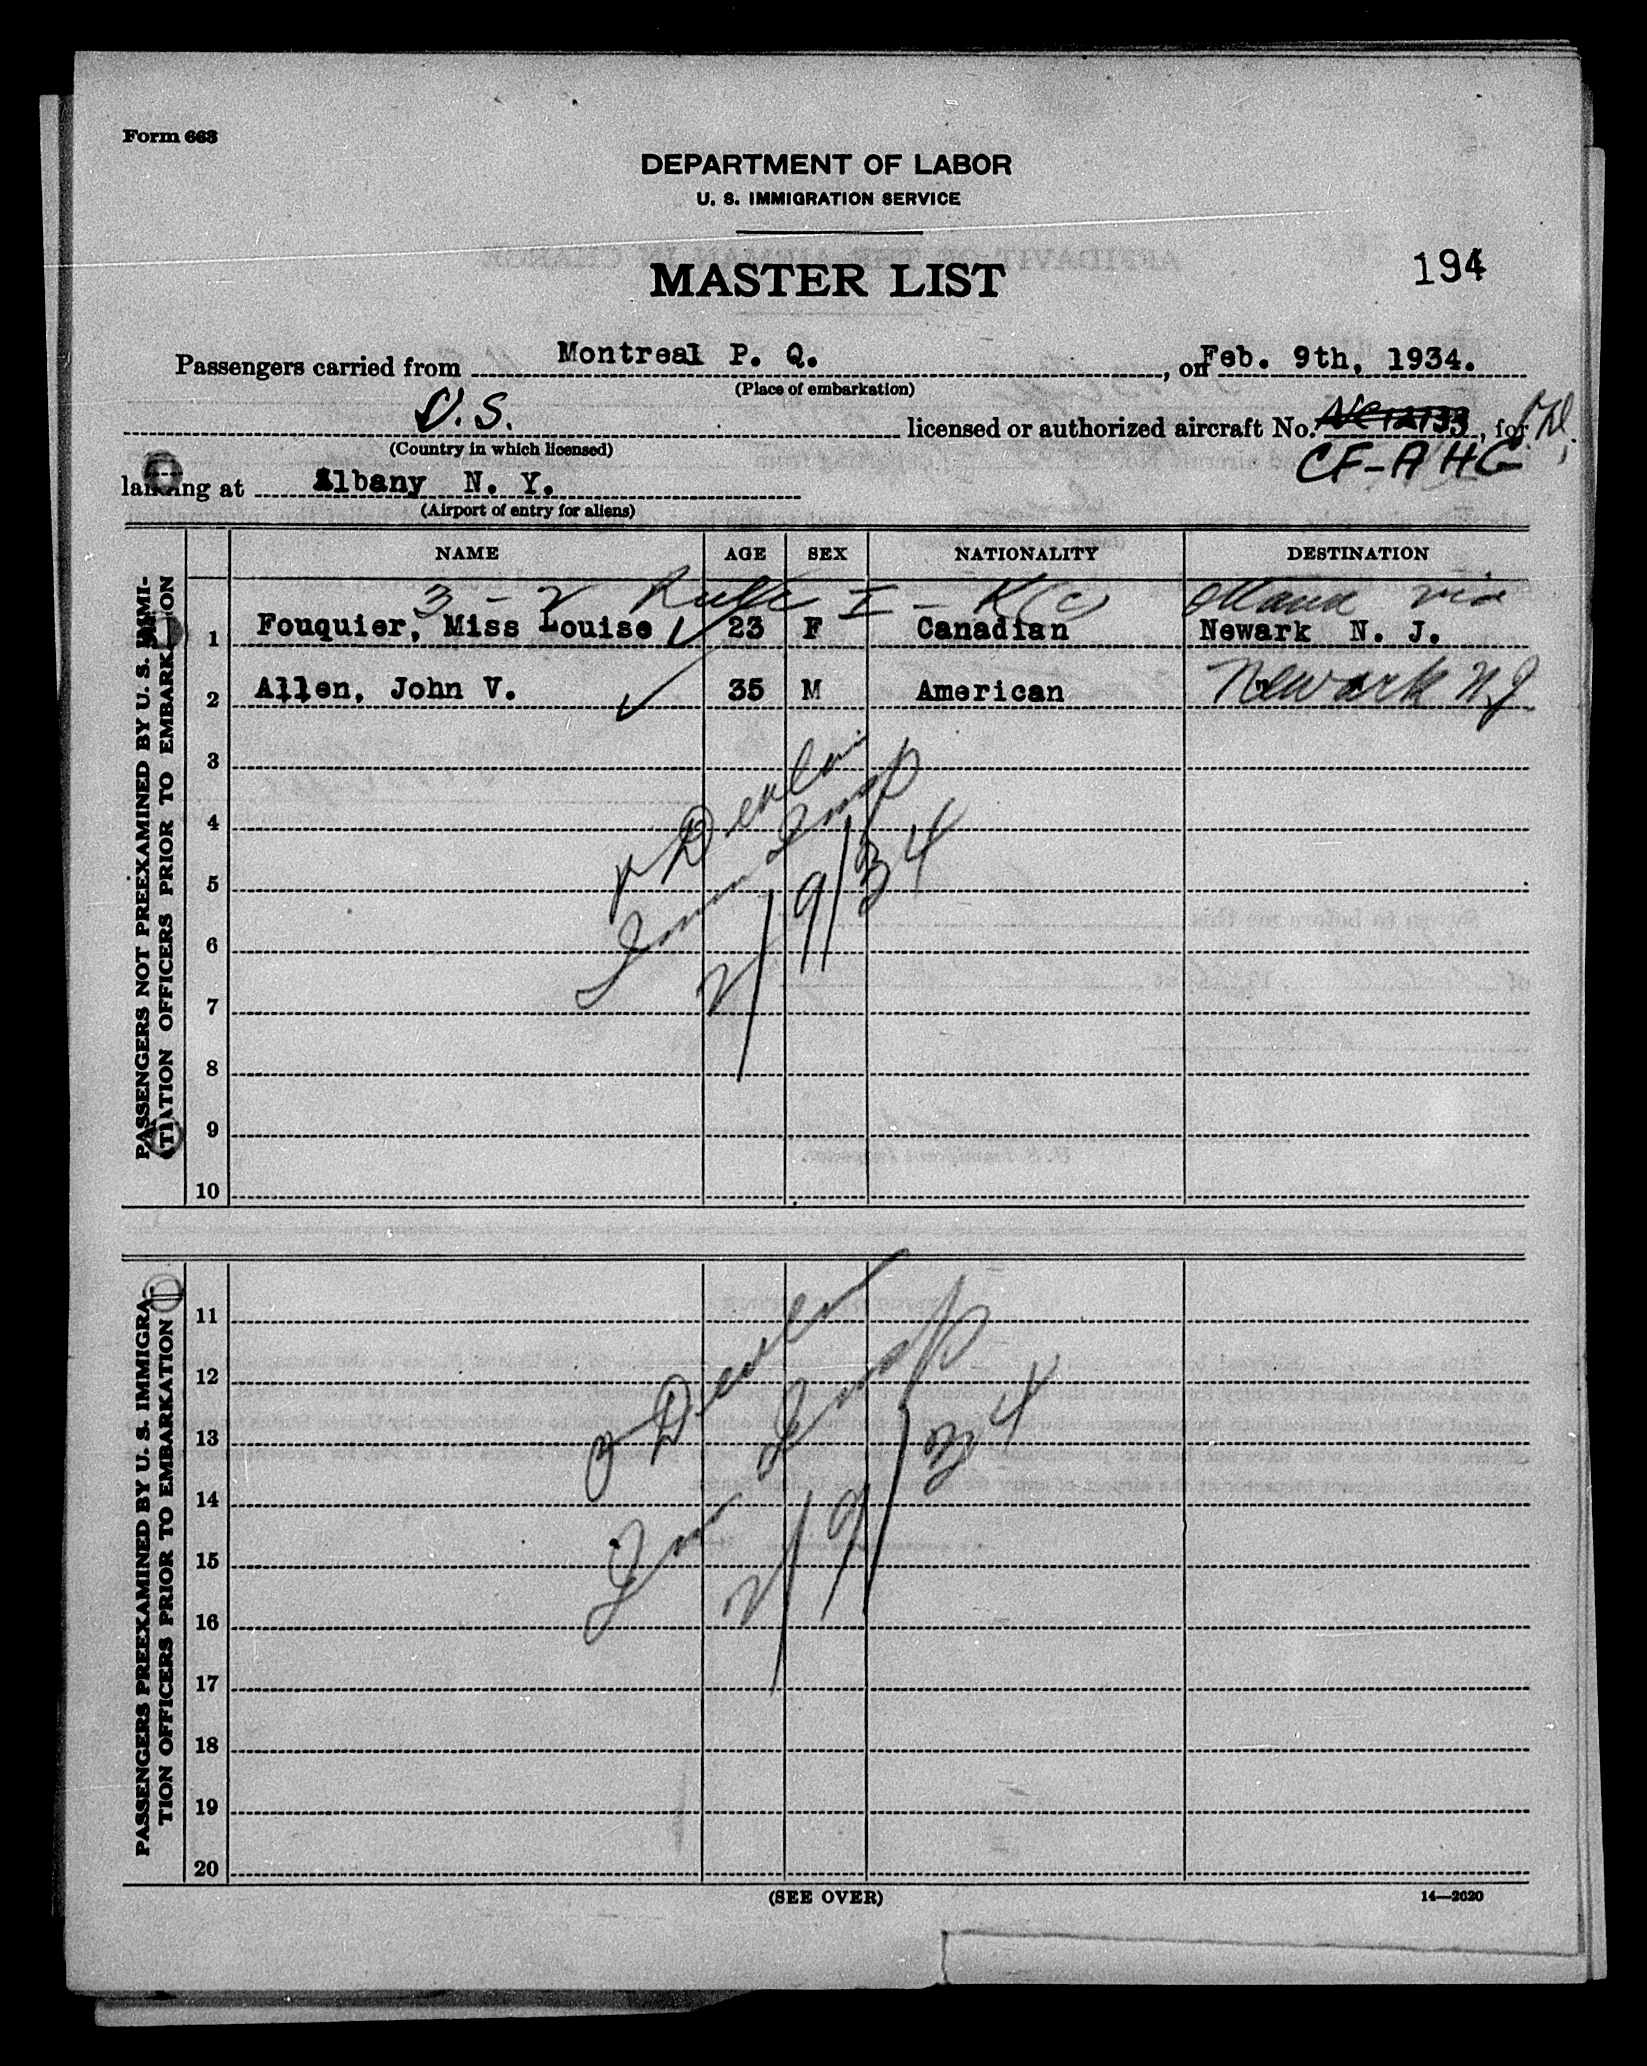 Form 663
DEPARTMENT OF LABOR
U. S. IMMIGRATION SERVICE
MASTER LIST
194
Passengers carried from Montreal P. Q. , on Feb. 9th, 1934.
(Place of embarkation)
U.S. licensed or authorized aircraft No. , for
(Country in which licensed)
CF-AHG
landing at Albany N. Y.
(Airport of entry for aliens)
NAME AGE SEX NATIONALITY DESTINATION
3 - 2 Rule I - K(c) Ottawa via
1 Fouquier, Miss Louise ✓ 23 F Canadian Newark N. J.
2 Allen, John V. ✓ 35 M American Newark NJ
3
4
5
6
7
8
9
10
Imm Insp
2/9/34
PASSENGERS NOT PREEXAMINED BY U. S. IMMI-
GRATION OFFICERS PRIOR TO EMBARKATION
11
12
13
14
15
16
17
18
19
20
Imm Insp
2/9/34
PASSENGERS PREEXAMINED BY U. S. IMMIGRA-
TION OFFICERS PRIOR TO EMBARKATION
(SEE OVER)
14—2020